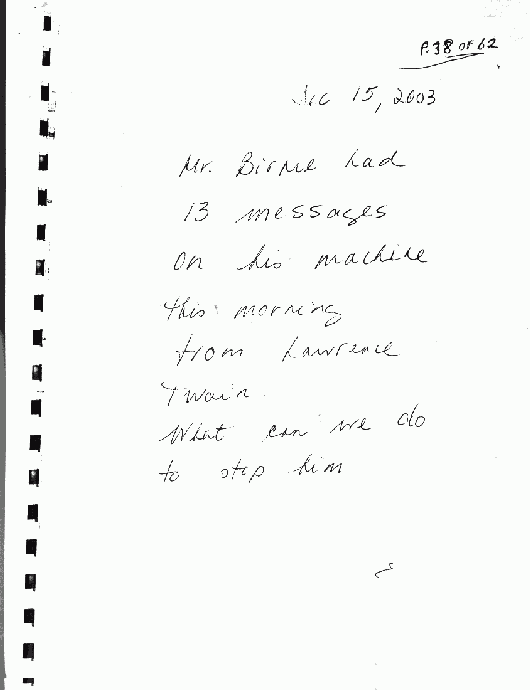 P.38 OF 62
Dec 15, 2003
Mr. Birnie had
13 messages
on his machine
this morning
from Lawrence
Twain.
What can we do
to stop him